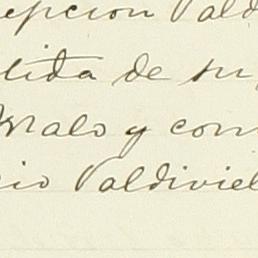 epcion Vald
lida de su
Malo y com
cio Valdiviel